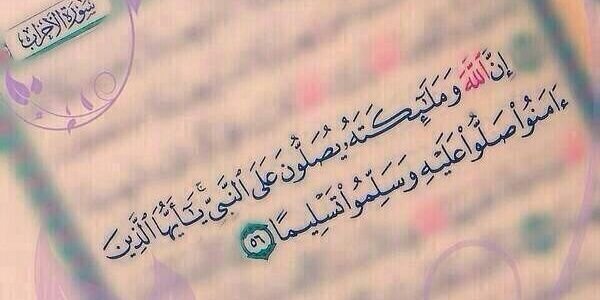 سورة الأحزاب
إِنَّ ٱللَّهَ وَمَلَٰٓئِكَتَهُۥ يُصَلُّونَ عَلَى ٱلنَّبِيِّ ۚ يَٰٓأَيُّهَا ٱلَّذِينَ
ءَامَنُوا۟ صَلُّوا۟ عَلَيْهِ وَسَلِّمُوا۟ تَسْلِيمًا ٥٦